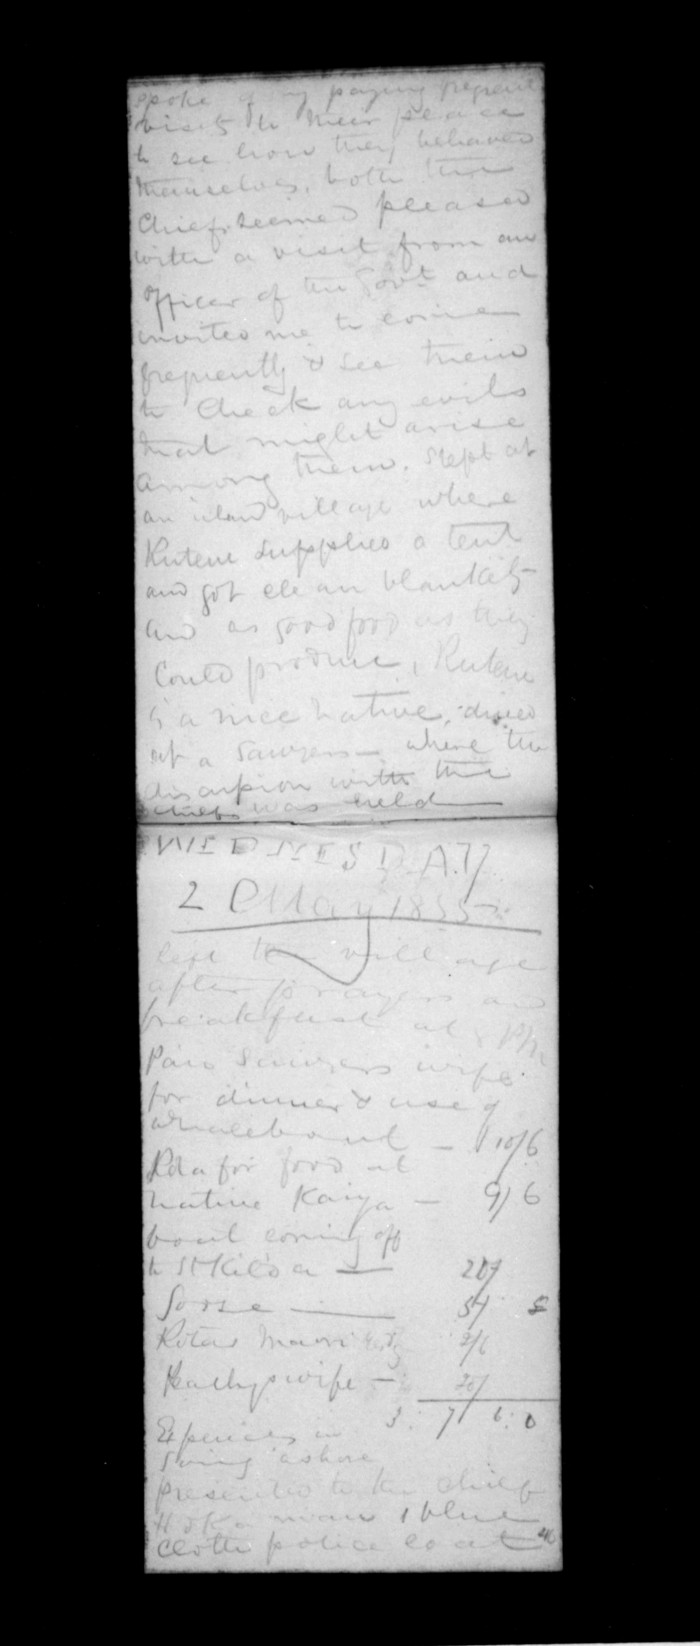 spoke of my paying frequent
visits to their place
to see how they behaved
themselves, both the
Chiefs seemed pleased
with a visit from an
officer of the Govt and
invited me to come
frequently & see them
to Check any evils
that might arise
among them. slept at
an island village where
Rutene supplied a tent
and got clean blankets
and as good food as they
Could produce, Rutene
is a nice native, dined
at a Sawyers — where the
discussion with the
chiefs was held
WEDNESDAY
2 May 1855
left the village
after prayers and
breakfast at 8
Paid Sawyers wife
for dinner & use of
whaleboat — 10/6
for food at
native Kaiga — 9/6
boat coming off
to St Kilda — 20/
— 5/
Maori 2/6
wife — 20/
3 : 7 : 6 : 0
Expences in
going ashore
presented to the chief
1 blue
cloth police coat